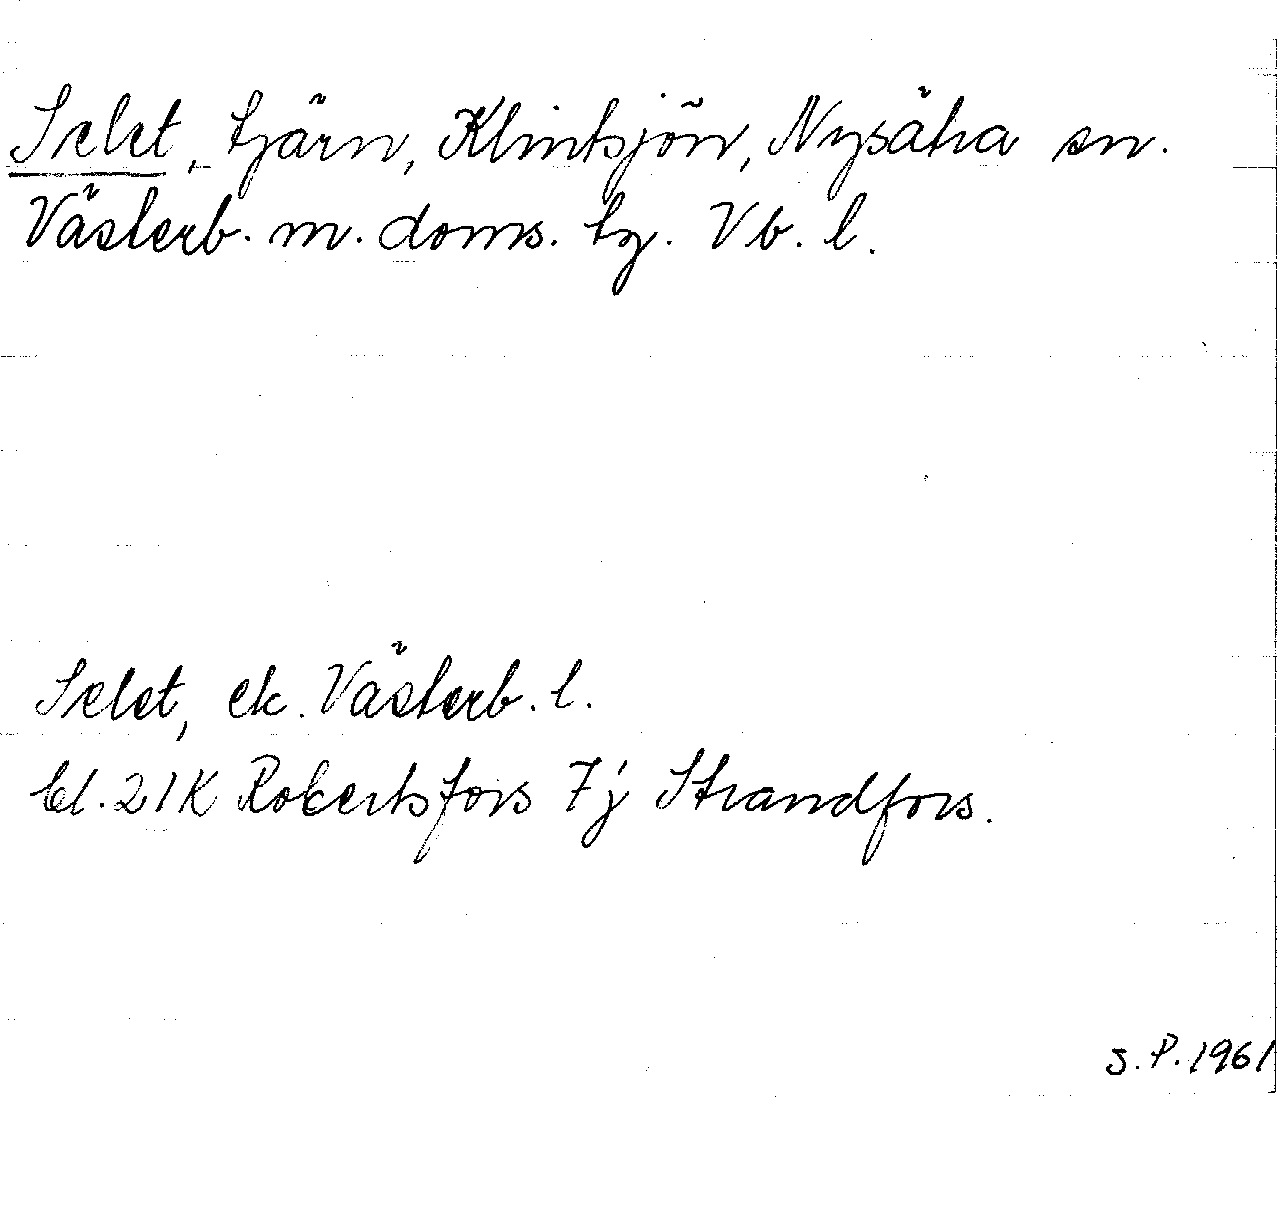 Selet, tjärn, Klintsjön, Nysätra sn.
Västerb. m. doms. tg. Vb. l.
Selet, ek. Västerb. l.
bl. 21K Robertsfors 7j Strandfors.
S.P. 1961